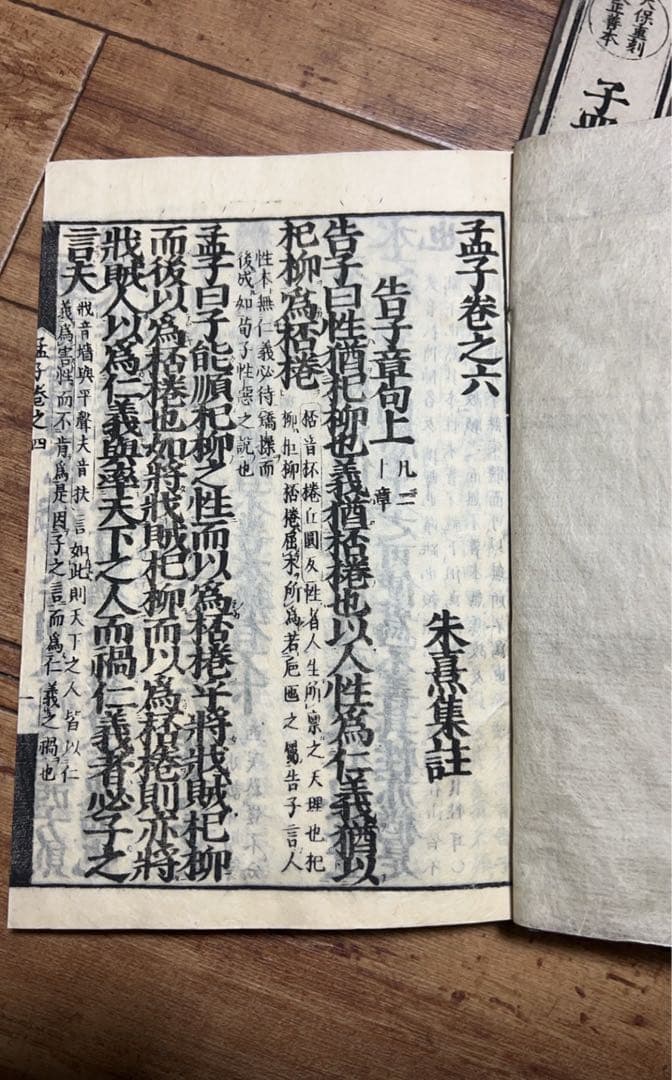 孟子卷之六
朱熹集註
告子章句上
凡二
十章
告子曰性猶杞柳也義猶桮棬也以人性爲仁義猶以
杞柳爲桮棬
桮音杯棬丘圓反性者人生所禀之天理也杞
柳柜柳桮棬屈木所爲若巵匜之屬告子言人
性本無仁義必待矯揉而
後成如荀子性惡之說也
孟子曰子能順杞柳之性而以爲桮棬乎將戕賊杞柳
而後以爲桮棬也如將戕賊杞柳而以爲桮棬則亦將
戕賊人以爲仁義與率天下之人而禍仁義者必子之
言夫
戕音墻與平聲夫音扶言如此則天下之人皆以仁
義爲害性而不肯爲是因子之言而爲仁義之禍也
孟子卷之四
天保重刻
正善本
孟子